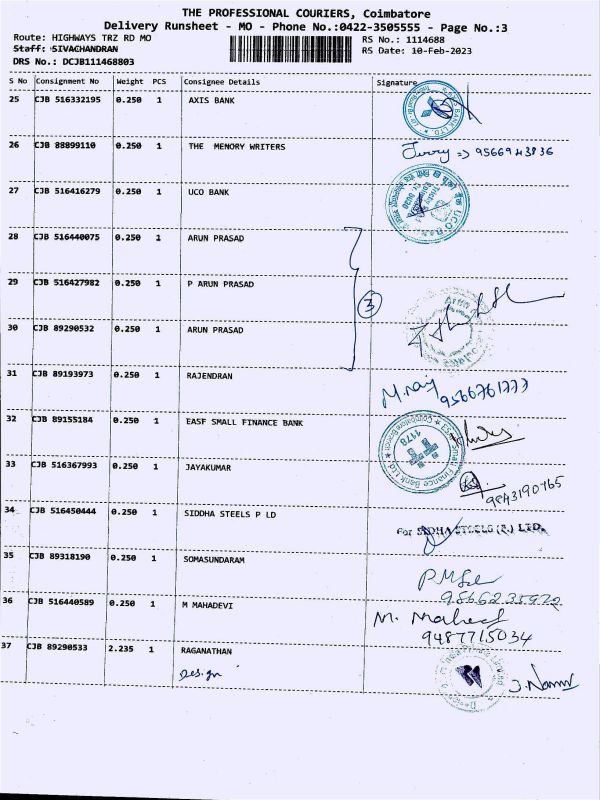 THE PROFESSIONAL COURIERS, Coimbatore
Delivery Runsheet - MO - Phone No.:0422-3505555 - Page No.:3
Route: HIGHWAYS TRZ RD MO RS No.: 1114688
Staff: SIVACHANDRAN RS Date: 10-Feb-2023
DRS No.: DCJB111468803
S No Consignment No Weight PCS Consignee Details Signature
25 CJB 516332195 0.250 1 AXIS BANK
26 CJB 88899110 0.250 1 THE MENORY WRITERS
27 CJB 516416279 0.250 1 UCO BANK
UCO BANK
28 CJB 516440075 0.250 1 ARUN PRASAD
29 CJB 516427982 0.250 1 P ARUN PRASAD
3
30 CJB 89290532 0.250 1 ARUN PRASAD
31 CJB 89193973 0.250 1 RAJENDRAN
M. raj 9566761777
32 CJB 89155184 0.250 1 EASF SMALL FINANCE BANK
1178
33 CJB 516367993 0.250 1 JAYAKUMAR
9843190765
34 CJB 516450444 0.250 1 SIDDHA STEELS P LD
For SIDHA STEELS (P.) LTD.
35 CJB 89318190 0.250 1 SOMASUNDARAM
36 CJB 516440589 0.250 1 M MAHADEVI
M.
9487715034
37 CJB 89290533 2.235 1 RAGANATHAN
Design